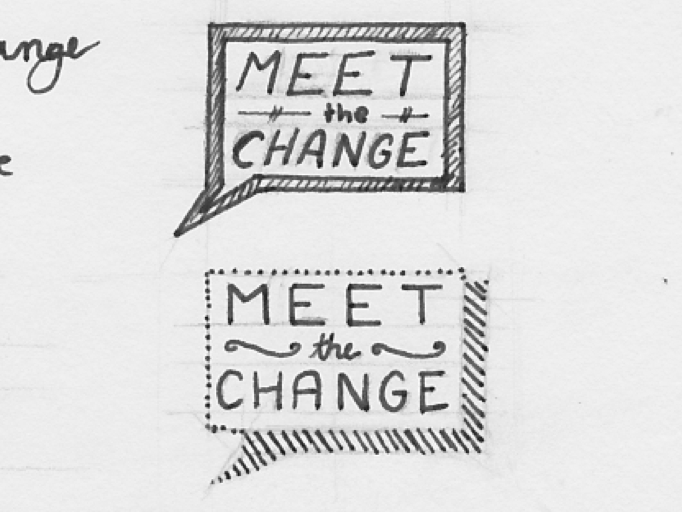 MEET
the
CHANGE
MEET
the
CHANGE